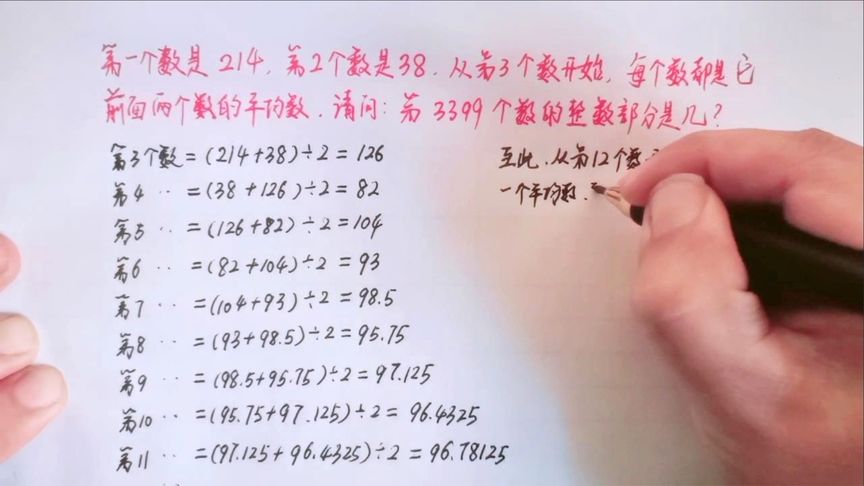 第一个数是 214, 第2个数是38. 从第3个数开始, 每个数都是它
前面两个数的平均数. 请问: 第 3399 个数的整数部分是几?
第3个数 = (214+38)÷2 = 126
第4 ‥ = (38+126)÷2 = 82
第5 ‥ = (126+82)÷2 = 104
第6 ‥ = (82+104)÷2 = 93
第7 ‥ = (104+93)÷2 = 98.5
第8 ‥ = (93+98.5)÷2 = 95.75
第9 ‥ = (98.5+95.75)÷2 = 97.125
第10 ‥ = (95.75+97.125)÷2 = 96.4325
第11 ‥ = (97.125+96.4325)÷2 = 96.78125
至此, 从第12个数
一个平均数.